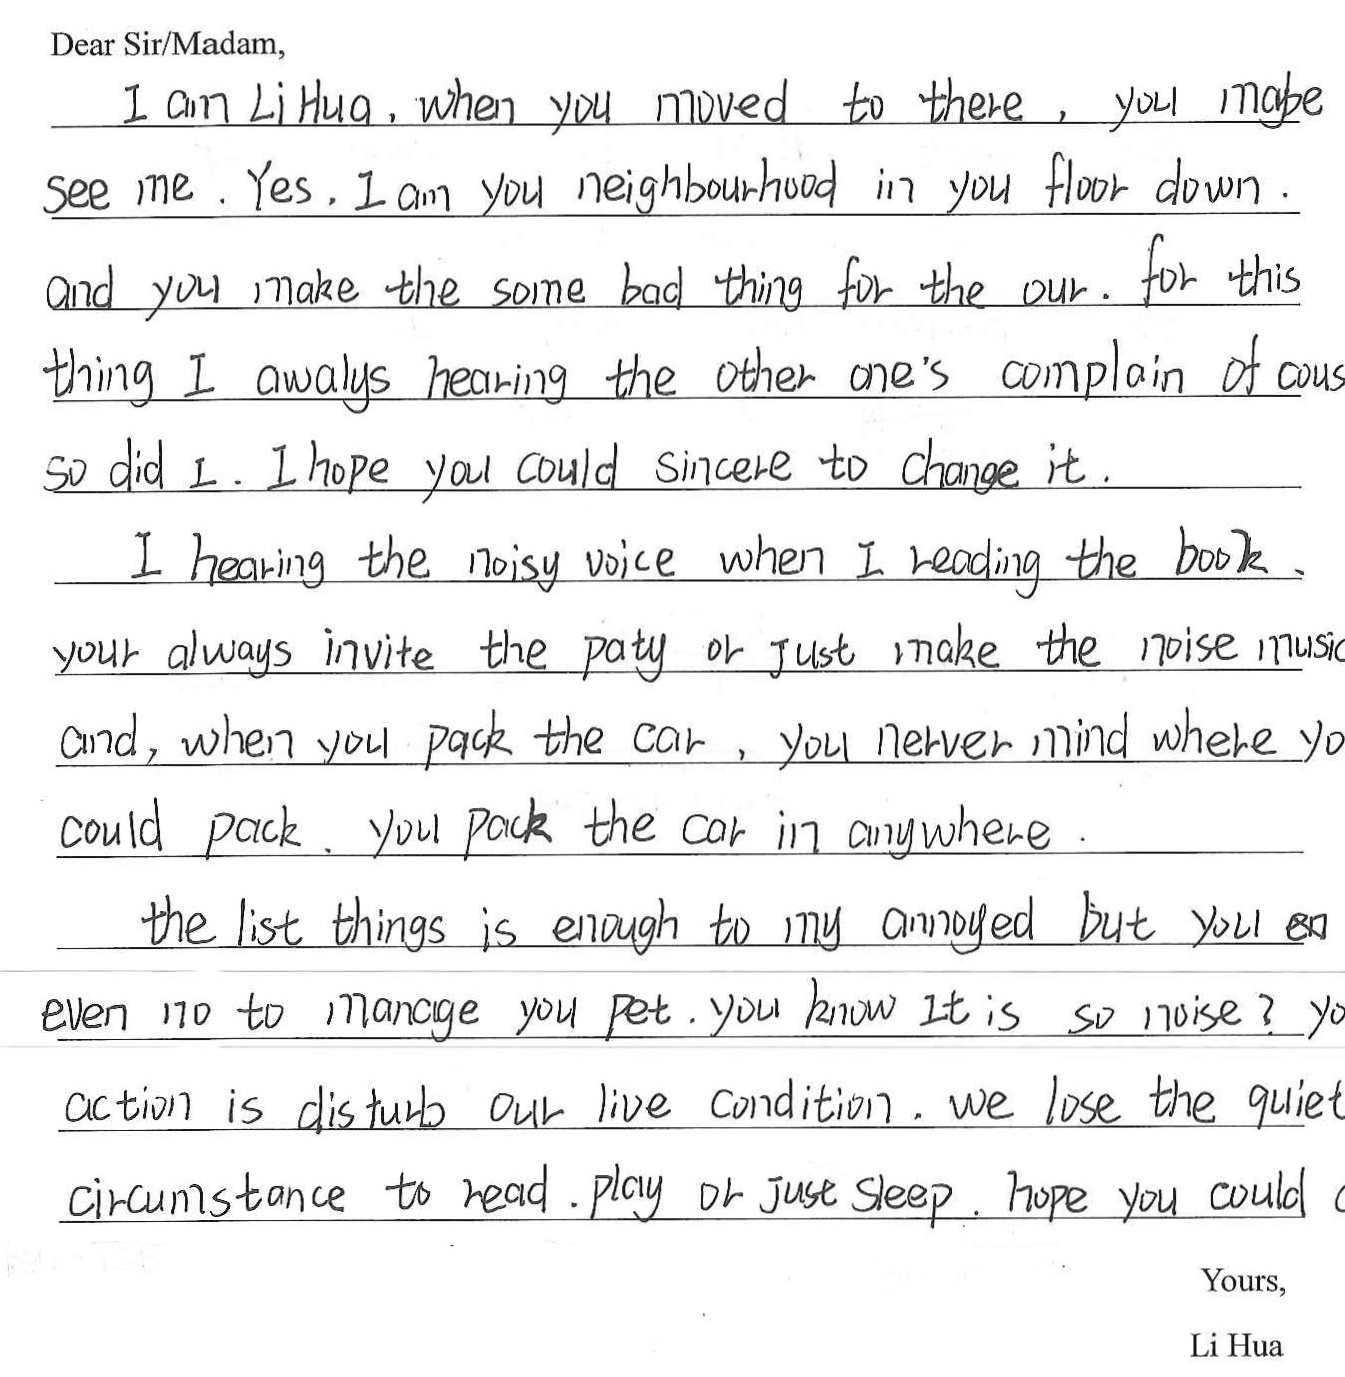 Dear Sir/Madam,
I am Li Hua. when you moved to there, you mabe
see me. Yes. I am you neighbourhood in you floor down.
and you make the some bad thing for the our. for this
thing I awalys hearing the other one's complain of cous
so did I. I hope you could sincere to change it.
I hearing the noisy voice when I reading the book.
your always invite the paty or just make the noise music
and, when you pack the car, you nerver mind where yo
could pack. you pack the car in anywhere.
the list things is enough to my annoyed but you en
even no to manage you pet. you know It is so noise? yo
action is disturb our live condition. we lose the quiet
circumstance to read. play or just sleep. hope you could
Yours,
Li Hua